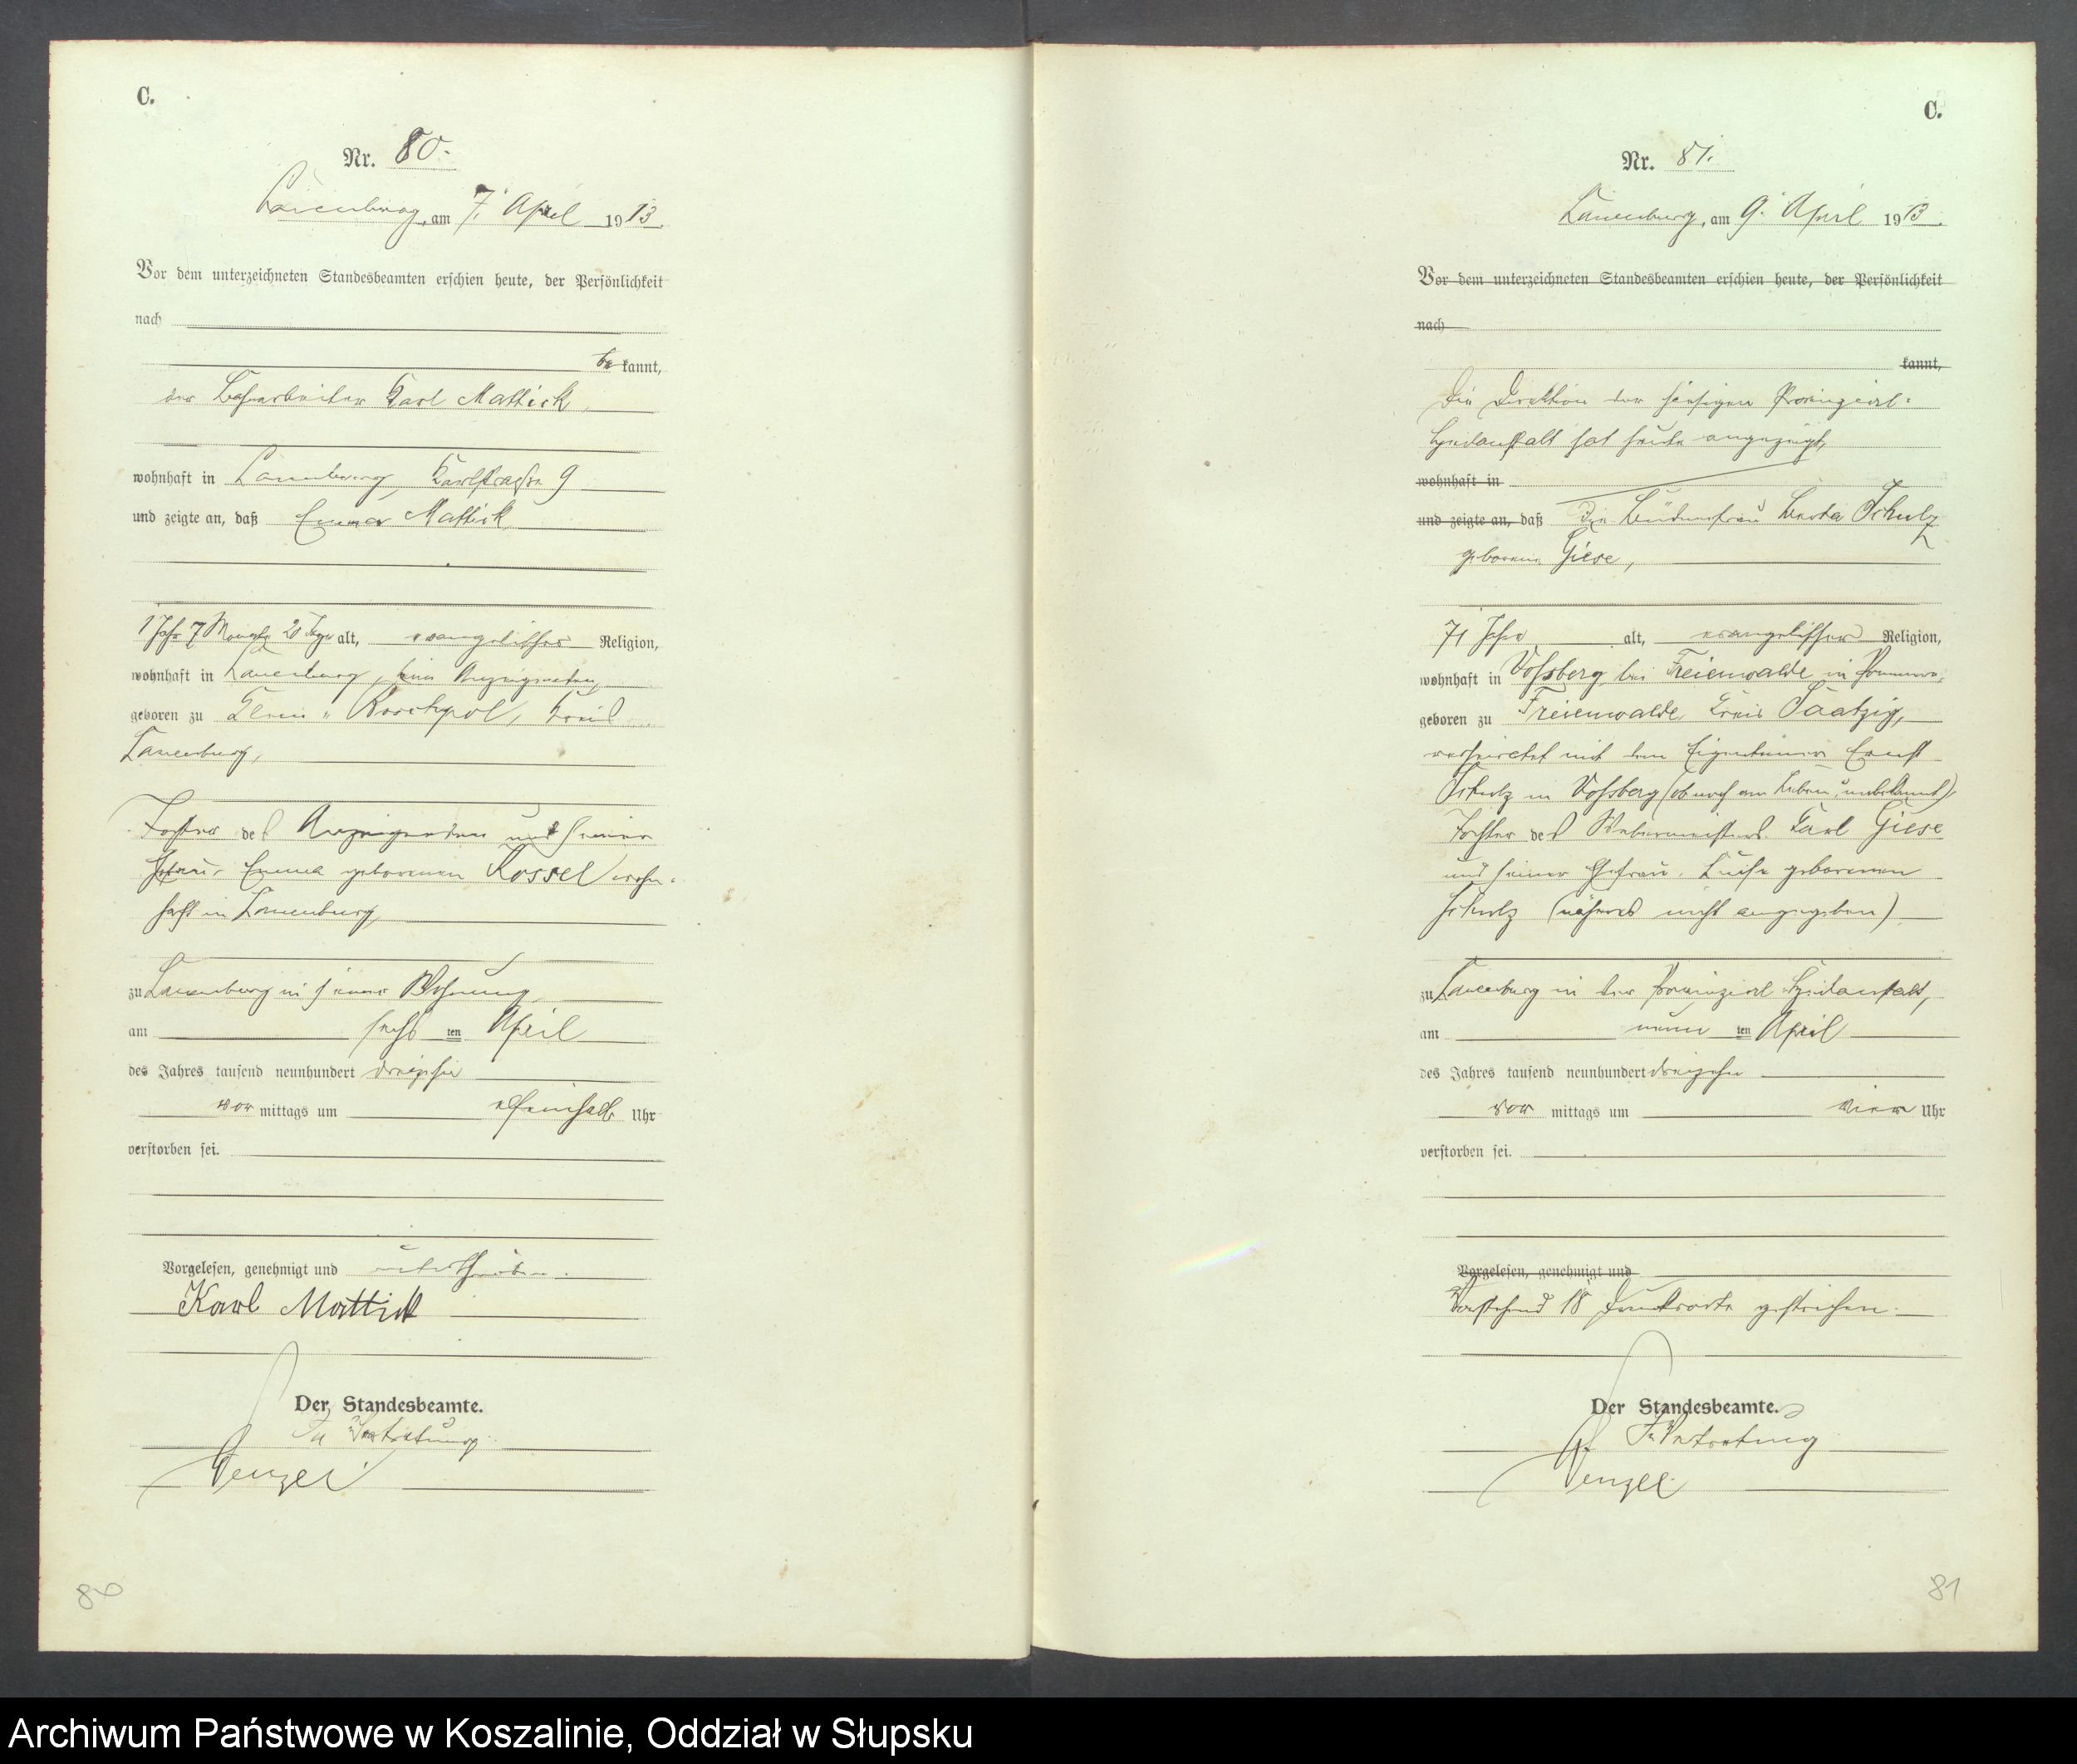 C.
Nr. 80.
Lauenburg, am 7. April 1913.
Vor dem unterzeichneten Standesbeamten erschien heute, der Persönlichkeit
nach
be kannt,
der Bahnarbeiter Karl Mattick,
wohnhaft in Lauenburg, Karlstraße 9
und zeigte an, daß Emma Mattick
1 Jahr 7 Monate 20 Tage alt, evangelischer Religion,
wohnhaft in Lauenburg, beim Anzeigenden,
geboren zu Klein Boschpol, Kreis
Lauenburg,
Tochter des Anzeigenden und seiner
Ehefrau Emma geborenen Kossel wohn-
haft in Lauenburg,
zu Lauenburg in seiner Wohnung
am sechsten April
des Jahres tausend neunhundert dreizehn
vor mittags um elfeinhalb Uhr
verstorben sei.
Vorgelesen, genehmigt und unterschrieben.
Karl Mattick
Der Standesbeamte.
In Vertretung
Wenzel
80
C.
Nr. 81.
Lauenburg, am 9. April 1913.
Vor dem unterzeichneten Standesbeamten erschien heute, der Persönlichkeit
nach
kannt,
Die Direktion der hiesigen Provinzial-
Heilanstalt hat heute angezeigt,
wohnhaft in
und zeigte an, daß die Büdnerfrau Berta Schulz
geborene Giese,
71 Jahre alt, evangelischer Religion,
wohnhaft in Voßberg bei Freienwalde in Pommern,
geboren zu Freienwalde, Kreis Saatzig,
verheiratet mit dem Eigentümer Ernst
Schulz in Voßberg (ob noch am Leben, unbekannt),
Tochter des Webermeisters Karl Giese
und seiner Ehefrau Luise geborenen
Schulz (näheres nicht angegeben)
zu Lauenburg in der Provinzial-Heilanstalt,
am neunten April
des Jahres tausend neunhundert dreizehn
vor mittags um vier Uhr
verstorben sei.
Vorgelesen, genehmigt und
Vorstehend 18 Druckworte gestrichen.
Der Standesbeamte.
In Vertretung
Wenzel
81
Archiwum Państwowe w Koszalinie, Oddział w Słupsku